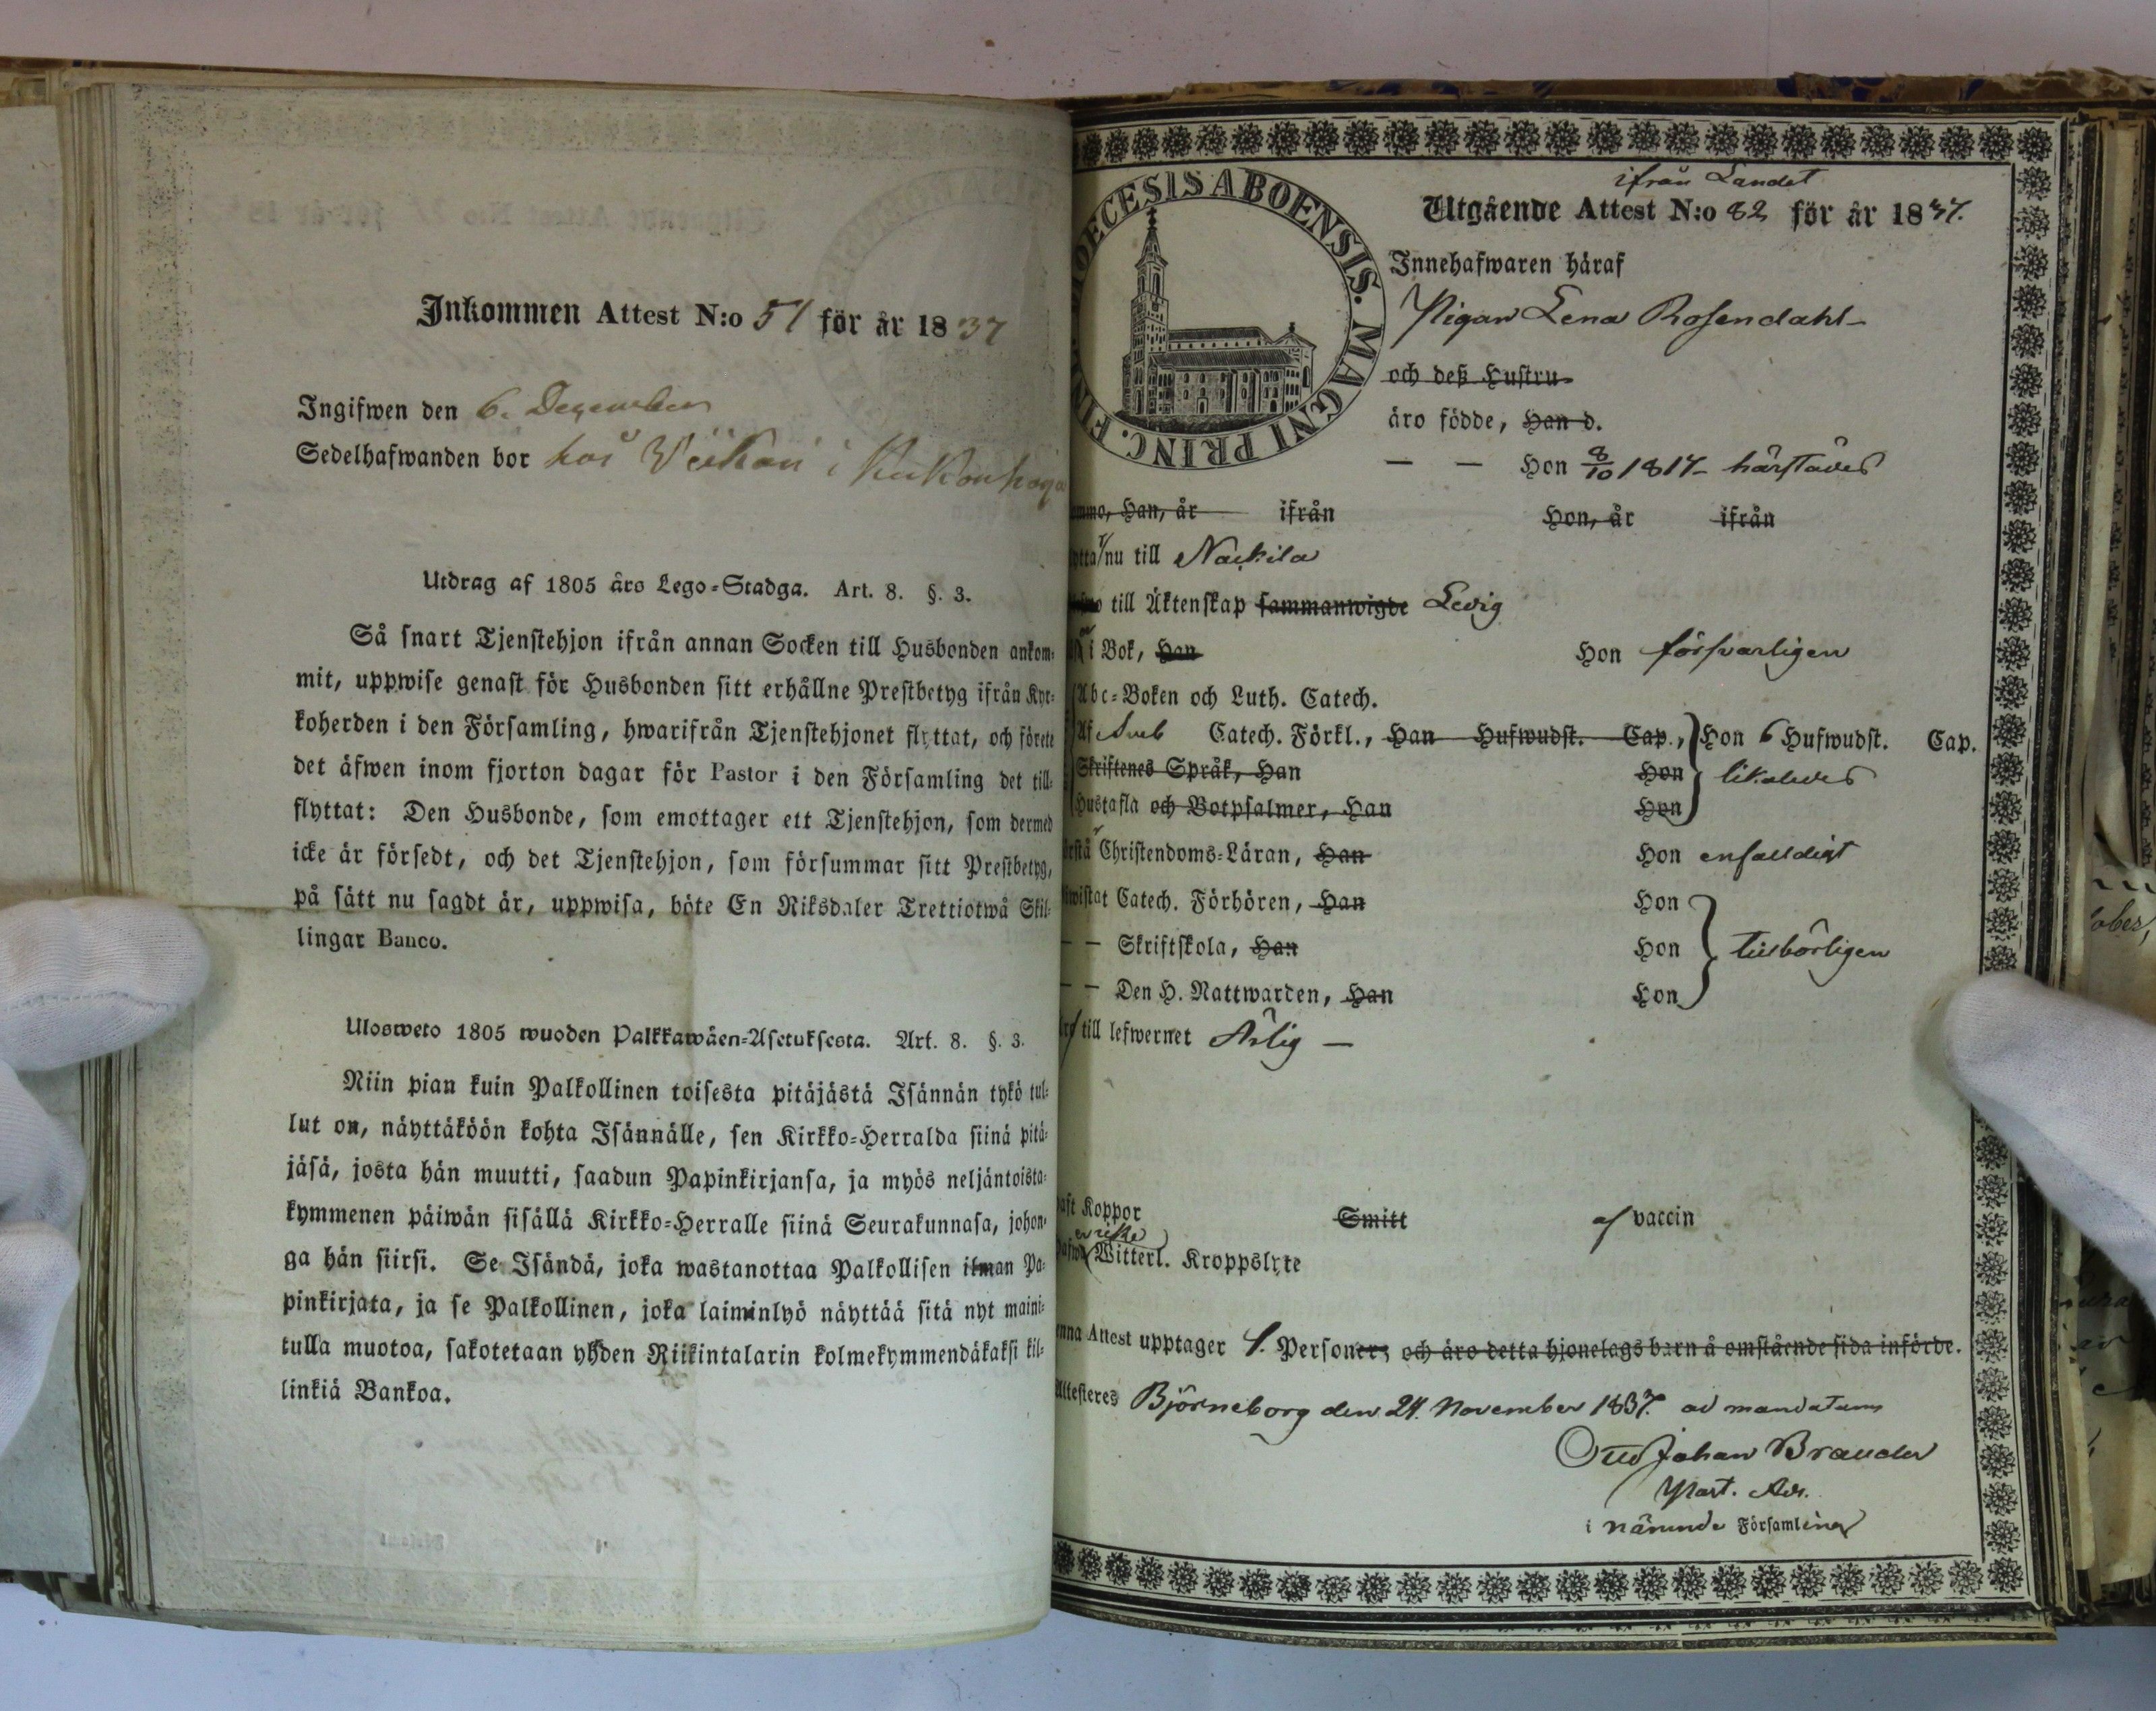 Inkommen Attest N:o 51 för år 1837
Ingifwen den 6. December
Sedelhafwanden bor hos i
Utdrag af 1805 års Lego-Stadga. Art. 8. §. 3.
Så snart Tjenstehjon ifrån annan Socken till Husbonden ankom-
mit, uppwise genast för Husbonden sitt erhållne Prestbetyg ifrån Kyr-
koherden i den Församling, hwarifrån Tjenstehjonet flyttat, och förete
det äfwen inom fjorton dagar för Pastor i den Församling det till-
flyttat: Den Husbonde, som emottager ett Tjenstehjon, som dermed
icke är försedt, och det Tjenstehjon, som försummar sitt Prestbetyg,
på sätt nu sagdt är, uppwisa, böte En Riksdaler Trettiotwå Skil-
lingar Banco.
Ulosweto 1805 wuoden Palkkawäen-Asetuksesta. Art. 8. §. 3.
Niin pian kuin Palkollinen toisesta pitäjästä Isännän tykö tul-
lut on, näyttäköön kohta Isännälle, sen Kirkko-Herralda siinä pitä-
jäsä, josta hän muutti, saadun Papinkirjansa, ja myös neljäntoista-
kymmenen päiwän sisällä Kirkko-Herralle siinä Seurakunnasa, johon-
ga hän siirsi. Se Isändä, joka wastanottaa Palkollisen ilman Pa-
pinkirjata, ja se Palkollinen, joka laiminlyö näyttää sitä nyt maini-
tulla muotoa, sakotetaan yhden Riikintalarin kolmekymmendäkaksi kil-
linkiä Bankoa.
DIOECESIS ABOENSIS. MAGNI PRINC. FINL.
ifrån Landet
Utgående Attest N:o 82 för år 1837.
Innehafwaren häraf
Pigan Lena Rosendahl
och deß Hustru
äro födde, Han d.
— — Hon 8/10 1817 härstädes
Han, år ifrån Hon, år ifrån
nu till Nackila
till Äktenskap sammanwigde Ledig
i Bok, Han Hon försvarligen
Abc-Boken och Luth. Catech.
Af Sveb Catech. Förkl., Han Hufwudst. Cap., Hon 6 Hufwudst. Cap.
Skriftenes Språk, Han Hon likaledes
Hustafla och Botpsalmer, Han Hon
Christendoms-Läran, Han Hon enfaldigt
Catech. Förhören, Han Hon
— — Skriftskola, Han Hon tillbörligen
— — Den H. Nattwarden, Han Hon
till lefwernet Ärlig —
Koppor Smitt af vaccin
ej
Witterl. Kroppslyte
Attest upptager 1. Personer; och äro detta hjonelags barn å omstående sida införde.
Attesteres Björneborg den 24. November 1837. ad mandatum
Johan Brander
Past. Adj.
i nämnde Församling